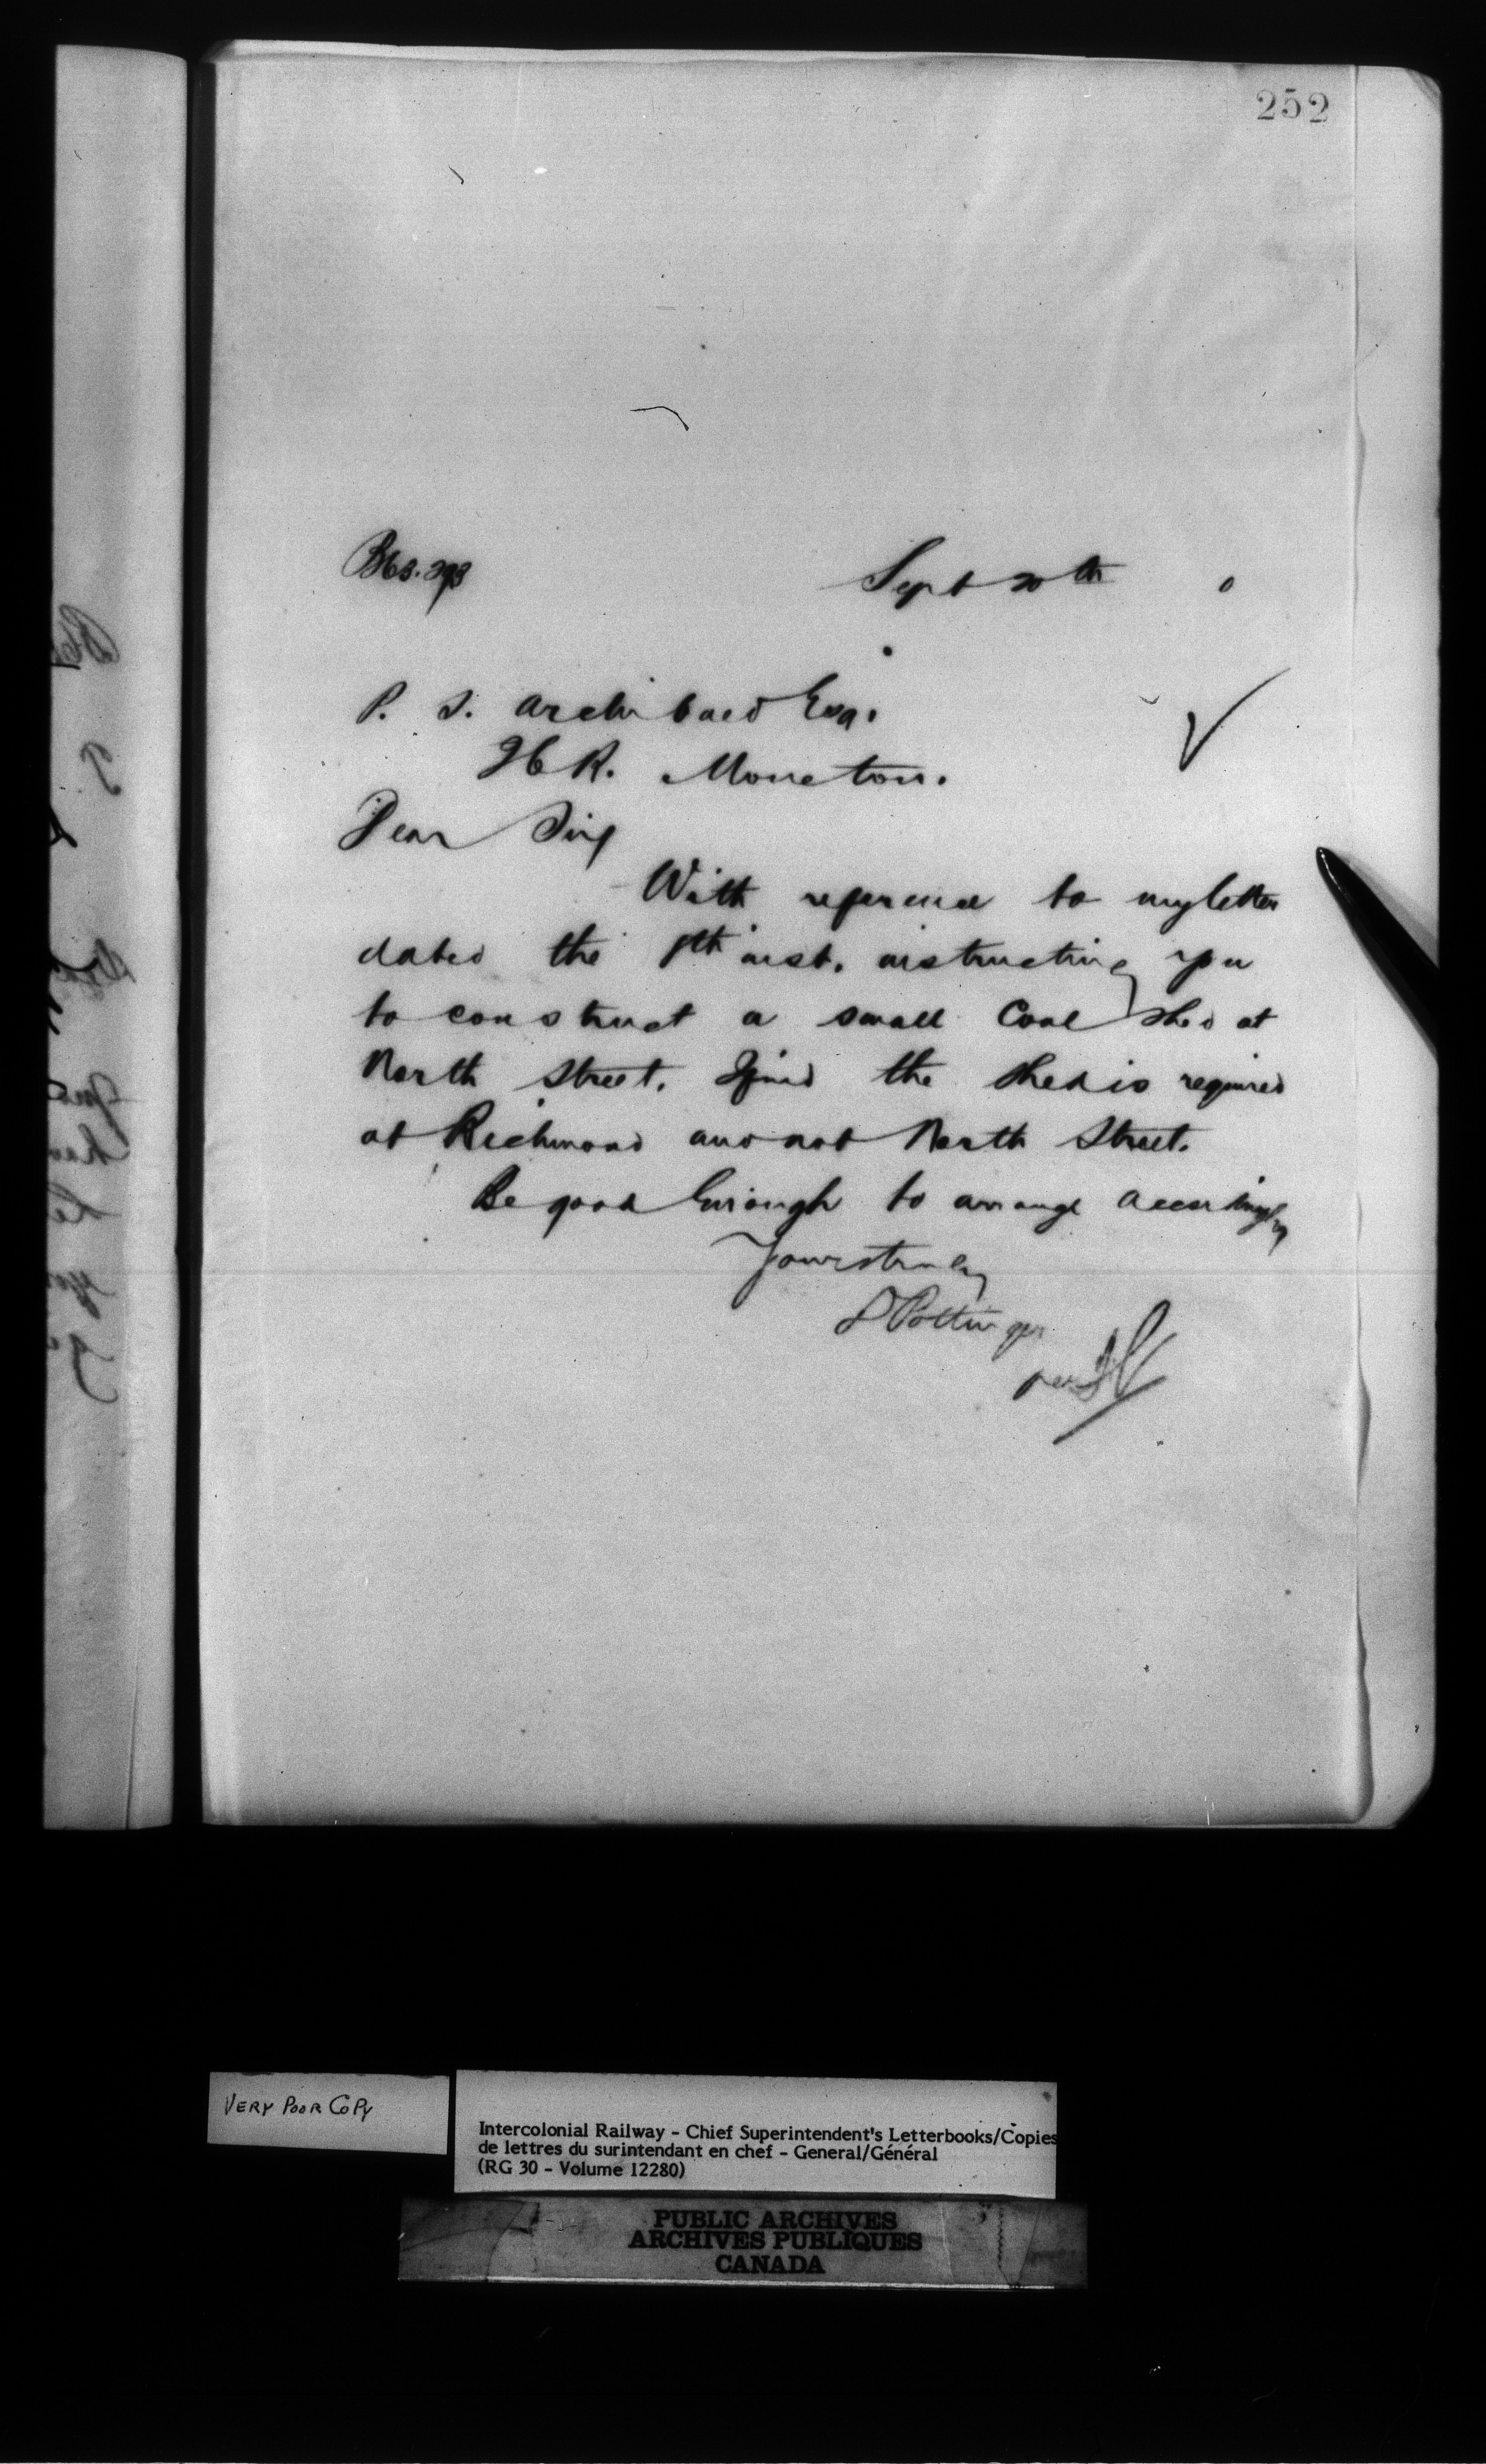 252
Sept 20th 0
P. S. Archibald Esq.
ICR. Moncton.
Dear Sir,
With reference to my letter
dated the inst. instructing you
to construct a small Coal shed at
North Street. I find the shed is required
at Richmond and not North Street.
Be good Enough to arrange accordingly
Yours truly
D Pottinger
per
VERY POOR COPY
Intercolonial Railway - Chief Superintendent's Letterbooks/Copies
de lettres du surintendant en chef - General/Général
(RG 30 - Volume 12280)
PUBLIC ARCHIVES
ARCHIVES PUBLIQUES
CANADA